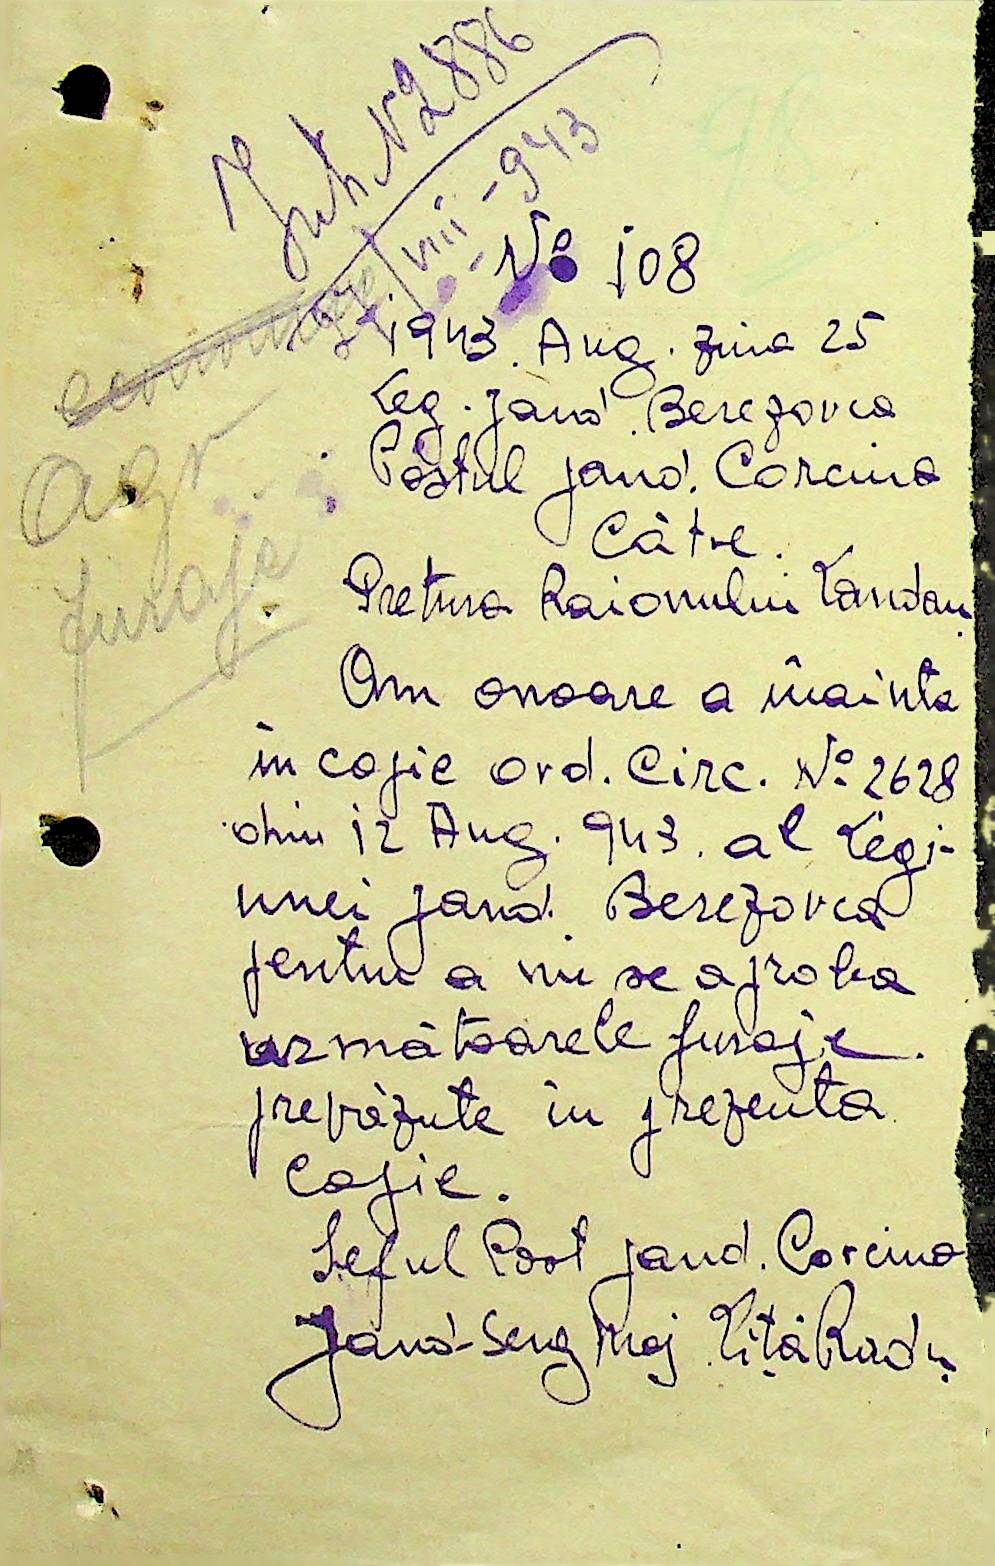 Int. N 2886
viii - 943
No 108
1943. Aug. ziua 25
Leg. jand. Berezovca
Postul jand. Corcina
Către.
Pretura Raionului Landau
Am onoare a înainta
în copie ord. Circ. No 2628
din 12 Aug. 943. al Legi-
unei jand. Berezovca
pentru a ni se aproba
următoarele furaje
prevăzute în prezenta
Copie.
Șeful Post jand. Corcina
Jand-Serg Maj Liță Radu
economic
Agr
furaje